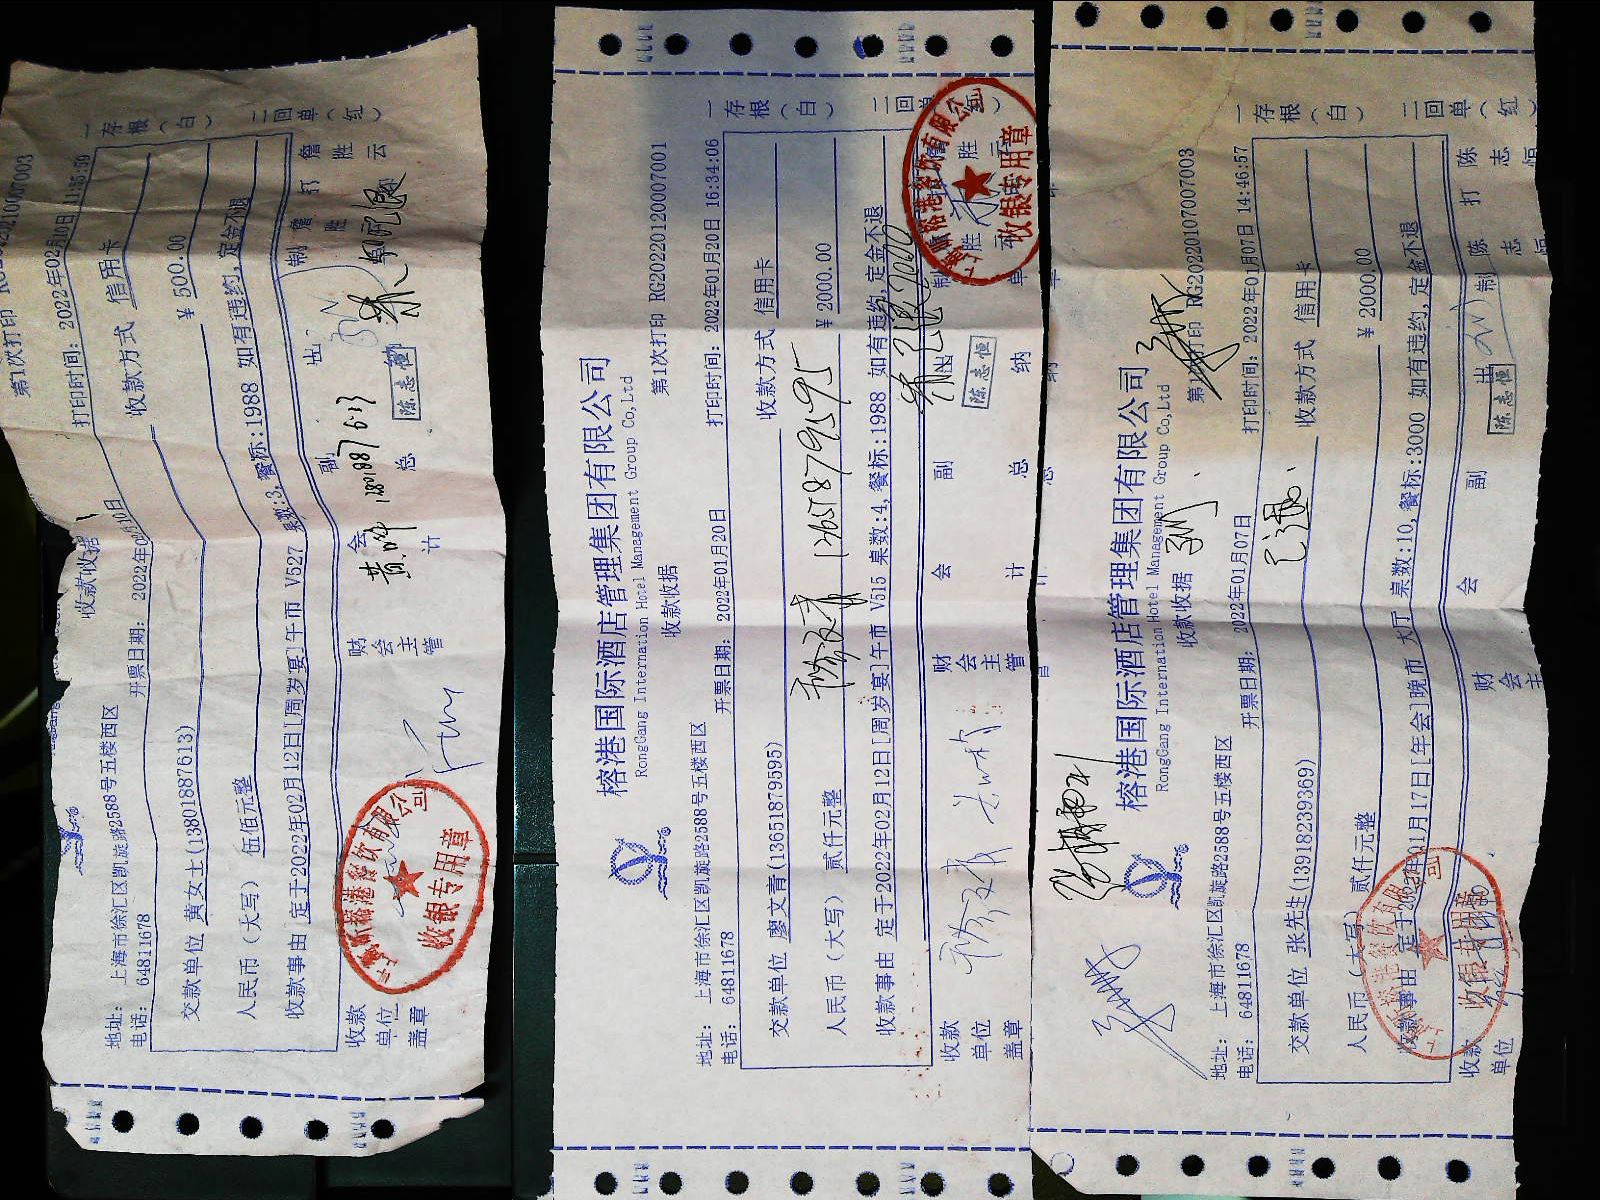 第1次打印
收款收据
打印时间: 2022年02月10日 11:35:59
地址: 上海市徐汇区凯旋路2588号五楼西区
电话: 64811678
开票日期:
交款单位 黄女士(13801887613)
收款方式 信用卡
人民币（大写） 伍佰元整
¥ 500.00
收款事由 定于2022年02月12日[周岁宴]午市 V527 桌数:3, 餐标:1988 如有违约, 定金不退
一存根（白） 二回单（红）
收款单位盖章
财会主管
会计
副总
出
制
打
詹胜云
陈志恒
收银专用章
榕港国际酒店管理集团有限公司
RongGang Internation Hotel Management Group Co,Ltd
第1次打印 RG20220120007001
收款收据
打印时间: 2022年01月20日 16:34:06
地址: 上海市徐汇区凯旋路2588号五楼西区
电话: 64811678
开票日期: 2022年01月20日
交款单位 廖文青(13651879595)
收款方式 信用卡
13651879595
人民币（大写） 贰仟元整
¥ 2000.00
收款事由 定于2022年02月12日[周岁宴]午市 V515 桌数:4, 餐标:1988 如有违约, 定金不退
一存根（白） 二回单（红）
收款单位盖章
财会主管
会计
副总
出纳
制单
陈志恒
收银专用章
榕港国际酒店管理集团有限公司
RongGang Internation Hotel Management Group Co,Ltd
RG20220107007003
收款收据
打印时间: 2022年01月07日 14:46:57
地址: 上海市徐汇区凯旋路2588号五楼西区
电话: 64811678
开票日期: 2022年01月07日
交款单位 张先生(13918239369)
收款方式 信用卡
人民币（大写） 贰仟元整
¥ 2000.00
收款事由 定于2022年01月17日[年会]晚市 大厅 桌数:10, 餐标:3000 如有违约, 定金不退
一存根（白） 二回单（红）
收款单位
财会主
会
副
出
制 陈志恒
打 陈志恒
陈志恒
收银专用章